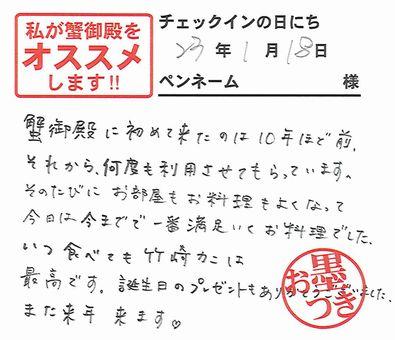 私が蟹御殿を
オススメ
します!!
チェックインの日にち
23年1月18日
ペンネーム 様
蟹御殿に初めて来たのは10年ほど前、
それから、何度も利用させてもらっています。
そのたびに お部屋もお料理もよくなって
今日は今までで一番満足いくお料理でした。
いつ食べても竹崎カニは
最高です。誕生日のプレゼントもありがとうございました。
また来年 来ます♡
お墨つき